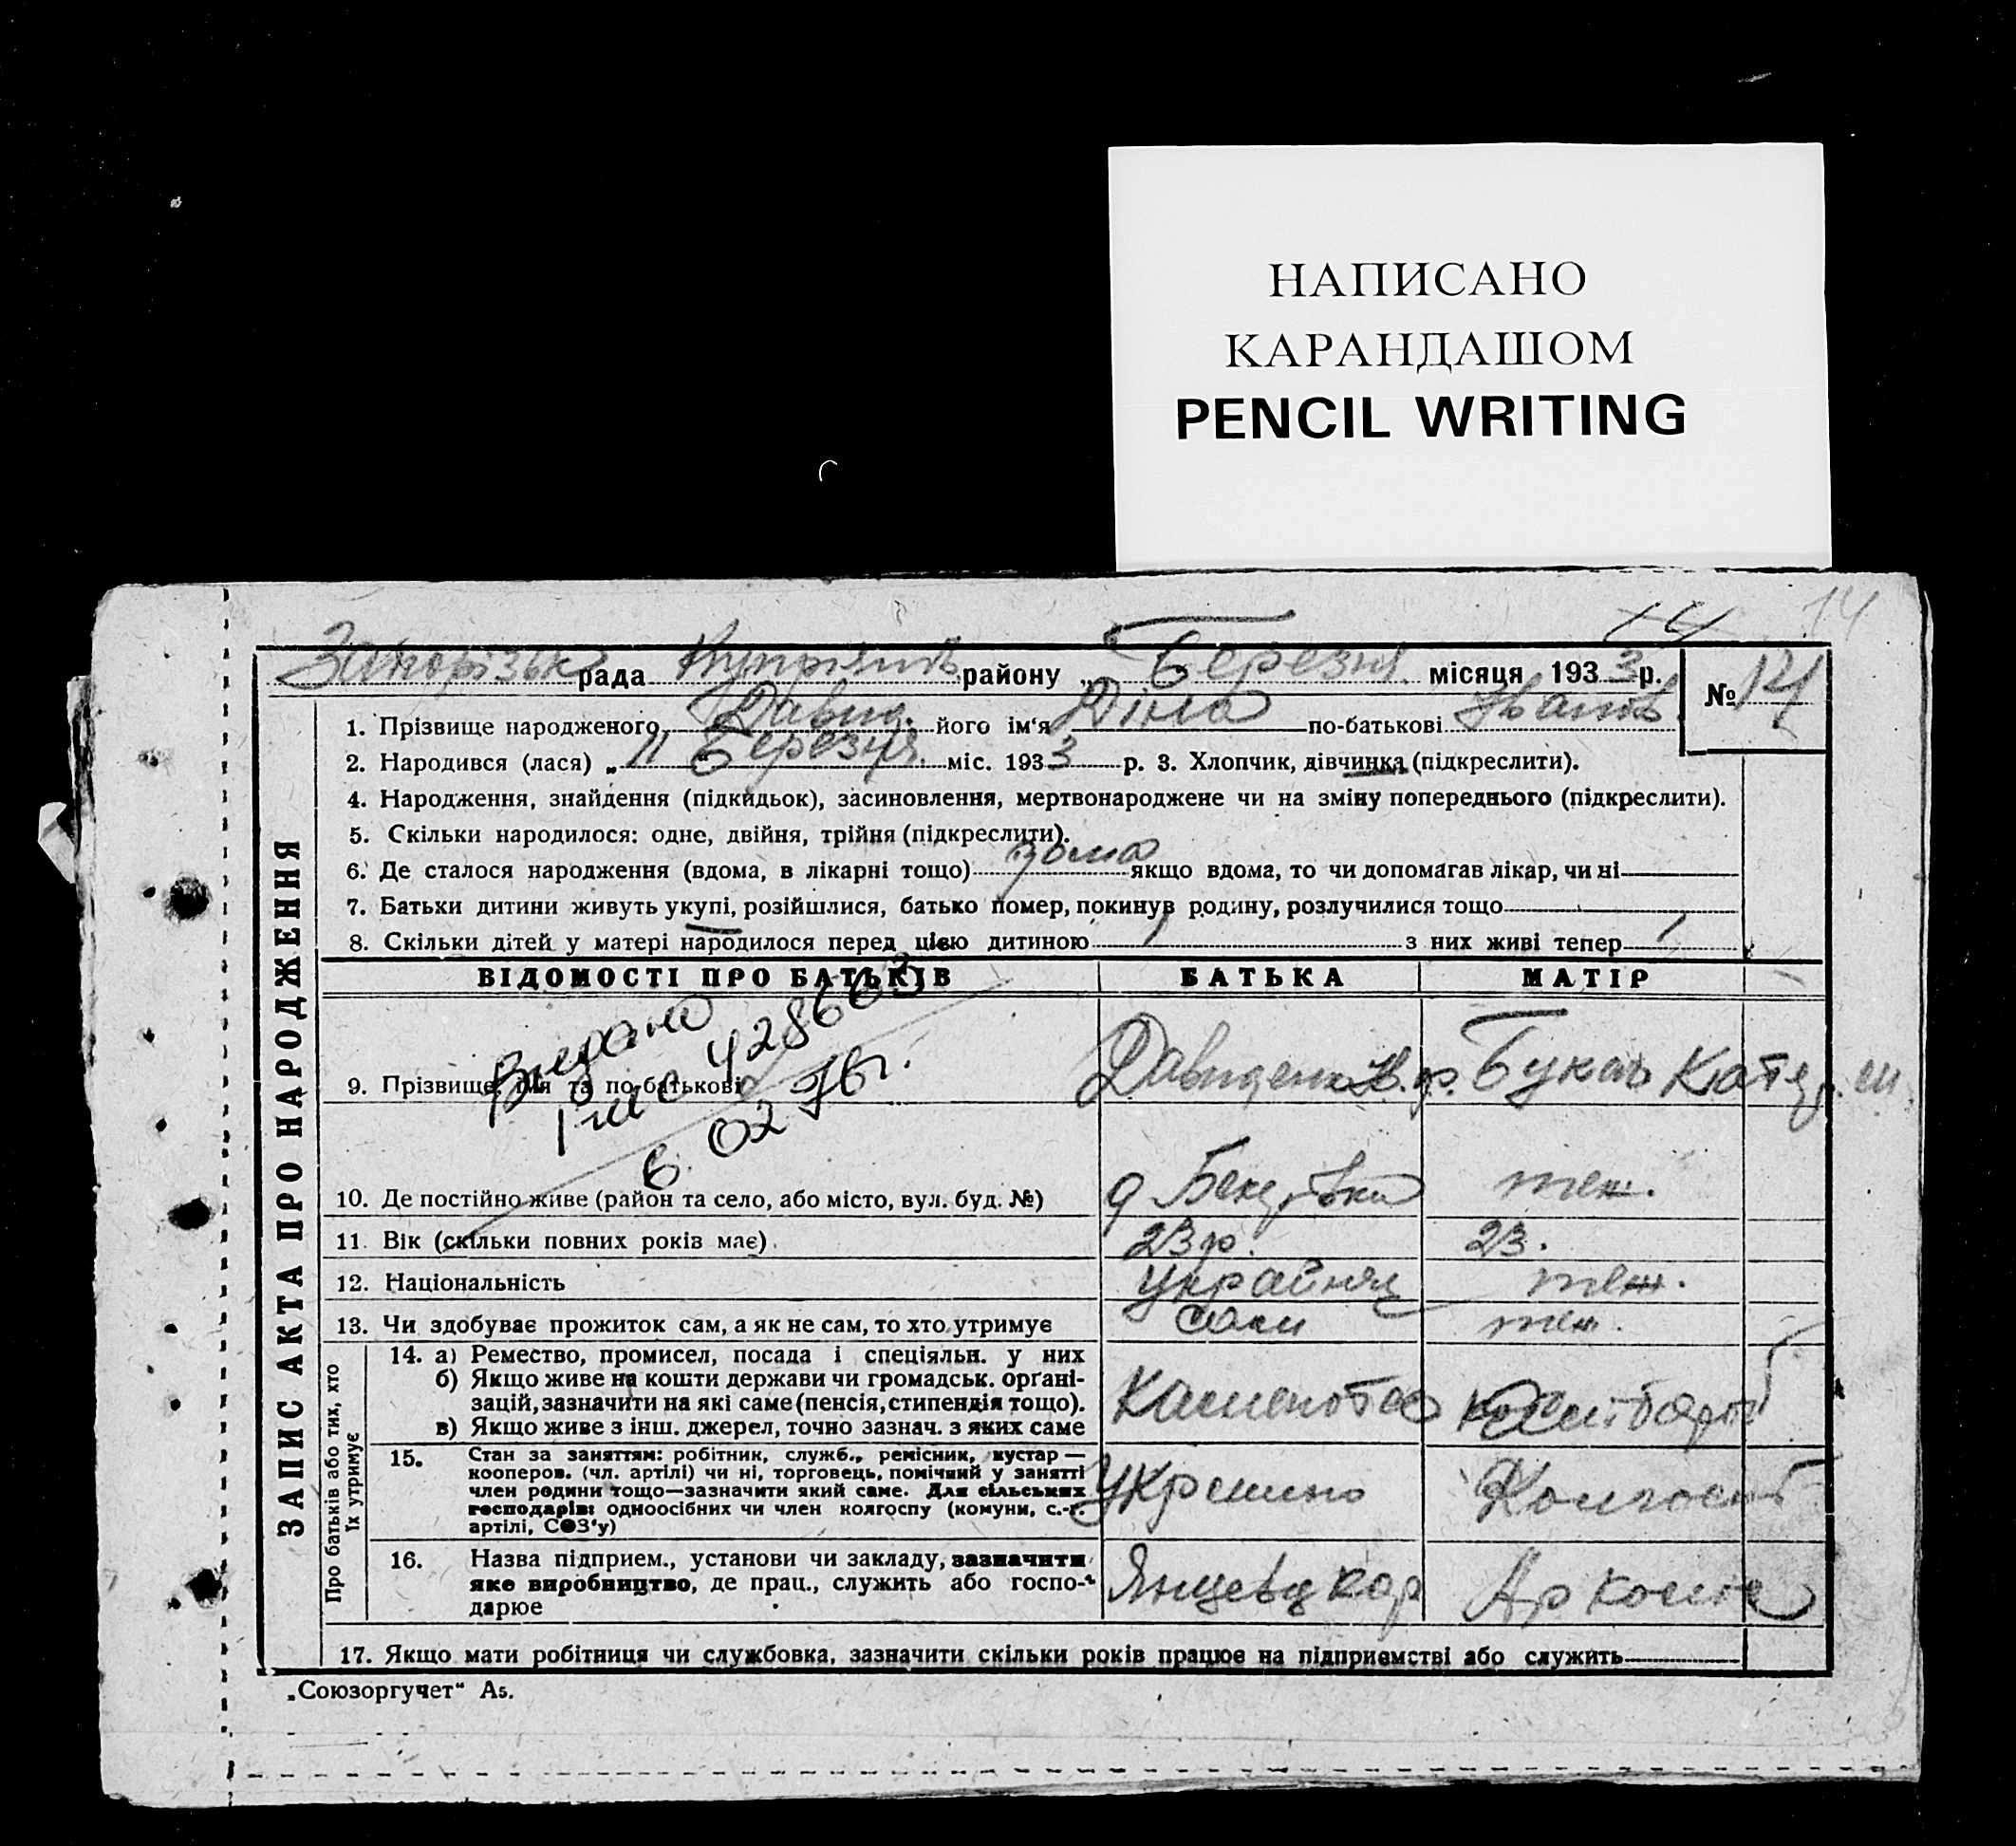 НАПИСАНО
КАРАНДАШОМ
PENCIL WRITING
14 14
Запорізьк рада район у „ Березня місяця 1933 р. № 14
1. Прізвище народженого Давид. його ім‘я Діна по-батькові Іванів.
2. Народився (лася) „11 Березня міс. 1933 р. 3. Хлопчик, дівчинка (підкреслити).
4. Народження, знайдення (підкидьок), засиновлення, мертвонароджене чи на зміну попереднього (підкреслити).
5. Скільки народилося: одне, двійня, трійня (підкреслити).
6. Де сталося народження (вдома, в лікарні тощо) дома якщо вдома, то чи допомагав лікар, чи ні
7. Батьки дитини живуть укупі, розійшлися, батько помер, покинув родину, розлучилися тощо
8. Скільки дітей у матері народилося перед цією дитиною 1 з них живі тепер 1
ЗАПИС АКТА ПРО НАРОДЖЕННЯ
ВІДОМОСТІ ПРО БАТЬКІВ БАТЬКА МАТІР
Видано
428663
6. 02 76г.
9. Прізвище, ім‘я та по-батькові Давиденко Букач Катер.
10. Де постійно живе (район та село, або місто, вул. буд. №) теж.
11. Вік (скільки повних років має) 23 р. 23.
12. Національність Українец теж.
13. Чи здобуває прожиток сам, а як не сам, то хто утримує сам теж.
Про батьків або тих, хто їх утримує
14. а) Ремество, промисел, посада і спеціяльн. у них
б) Якщо живе на кошти держави чи громадськ. органі-
зацій, зазначити на які саме (пенсія, стипендія тощо).
в) Якщо живе з інш. джерел, точно зазнач. з яких саме
15. Стан за заняттям: робітник, служб., ремісник, кустар—
кооперов. (чл. артілі) чи ні, торговець, помічний у занятті
член родини тощо—зазначити який саме. Для сільських
господарів: одноосібних чи член колгоспу (комуни, с.-г.
артілі, СОЗ‘у)
16. Назва підприєм., установи чи закладу, зазначити
яке виробництво, де прац., служить або госпо-
дарює
17. Якщо мати робітниця чи службовка, зазначити скільки років працює на підприємстві або служить
„Союзоргучет“ А5.